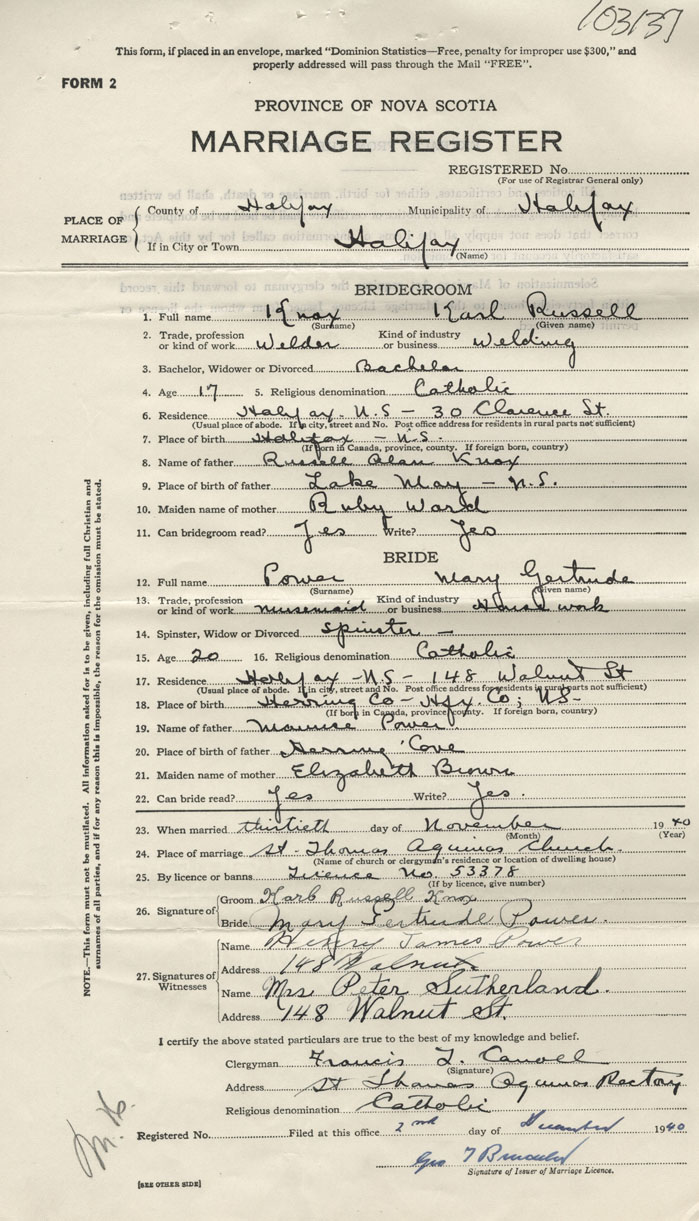 103137
This form, if placed in an envelope, marked "Dominion Statistics—Free, penalty for improper use $300," and
properly addressed will pass through the Mail "FREE".
FORM 2
PROVINCE OF NOVA SCOTIA
MARRIAGE REGISTER
REGISTERED No.
(For use of Registrar General only)
PLACE OF MARRIAGE
County of Halifax Municipality of Halifax
If in City or Town Halifax
(Name)
BRIDEGROOM
1. Full name Knox Karl Russell
(Surname) (Given name)
2. Trade, profession or kind of work Welder Kind of industry or business Welding
3. Bachelor, Widower or Divorced Bachelor
4. Age 17 5. Religious denomination Catholic
6. Residence Halifax - N.S - 30 Clarence St.
(Usual place of abode. If in city, street and No. Post office address for residents in rural parts not sufficient)
7. Place of birth Halifax - N.S.
(If born in Canada, province, county. If foreign born, country)
8. Name of father Russell Alan Knox
9. Place of birth of father Lake May - N.S.
10. Maiden name of mother Ruby Ward
11. Can bridegroom read? Yes Write? Yes
BRIDE
12. Full name Power Mary Gertrude
(Surname) (Given name)
13. Trade, profession or kind of work nursemaid Kind of industry or business House work
14. Spinster, Widow or Divorced Spinster -
15. Age 20 16. Religious denomination Catholic
17. Residence Halifax - N.S - 148 Walnut St
(Usual place of abode. If in city, street and No. Post office address for residents in rural parts not sufficient)
18. Place of birth Herring Co - Hfx. Co; N.S-
(If born in Canada, province, county. If foreign born, country)
19. Name of father Power.
20. Place of birth of father Herring Cove
21. Maiden name of mother Elizabeth Brown
22. Can bride read? Yes Write? Yes.
23. When married thirtieth day of November 1940
(Month) (Year)
24. Place of marriage St - Thomas Aquinas Church.
(Name of church or clergyman's residence or location of dwelling house)
25. By licence or banns Licence No. 53378
(If by licence, give number)
26. Signature of
Groom Karl Russell Knox
Bride Mary Gertrude Power.
27. Signatures of Witnesses
Name Henry James Power
Address 148 Walnut
Name Mrs Peter Sutherland.
Address 148 Walnut St.
I certify the above stated particulars are true to the best of my knowledge and belief.
Clergyman Francis
(Signature)
Address St Thomas Aquinas Rectory
Religious denomination Catholic
Registered No. Filed at this office 2nd day of December 1940
Geo T
Signature of Issuer of Marriage Licence.
[SEE OTHER SIDE]
NOTE.—This form must not be mutilated. All information asked for is to be given, including full Christian and
surnames of all parties, and if for any reason this is impossible, the reason for the omission must be stated.